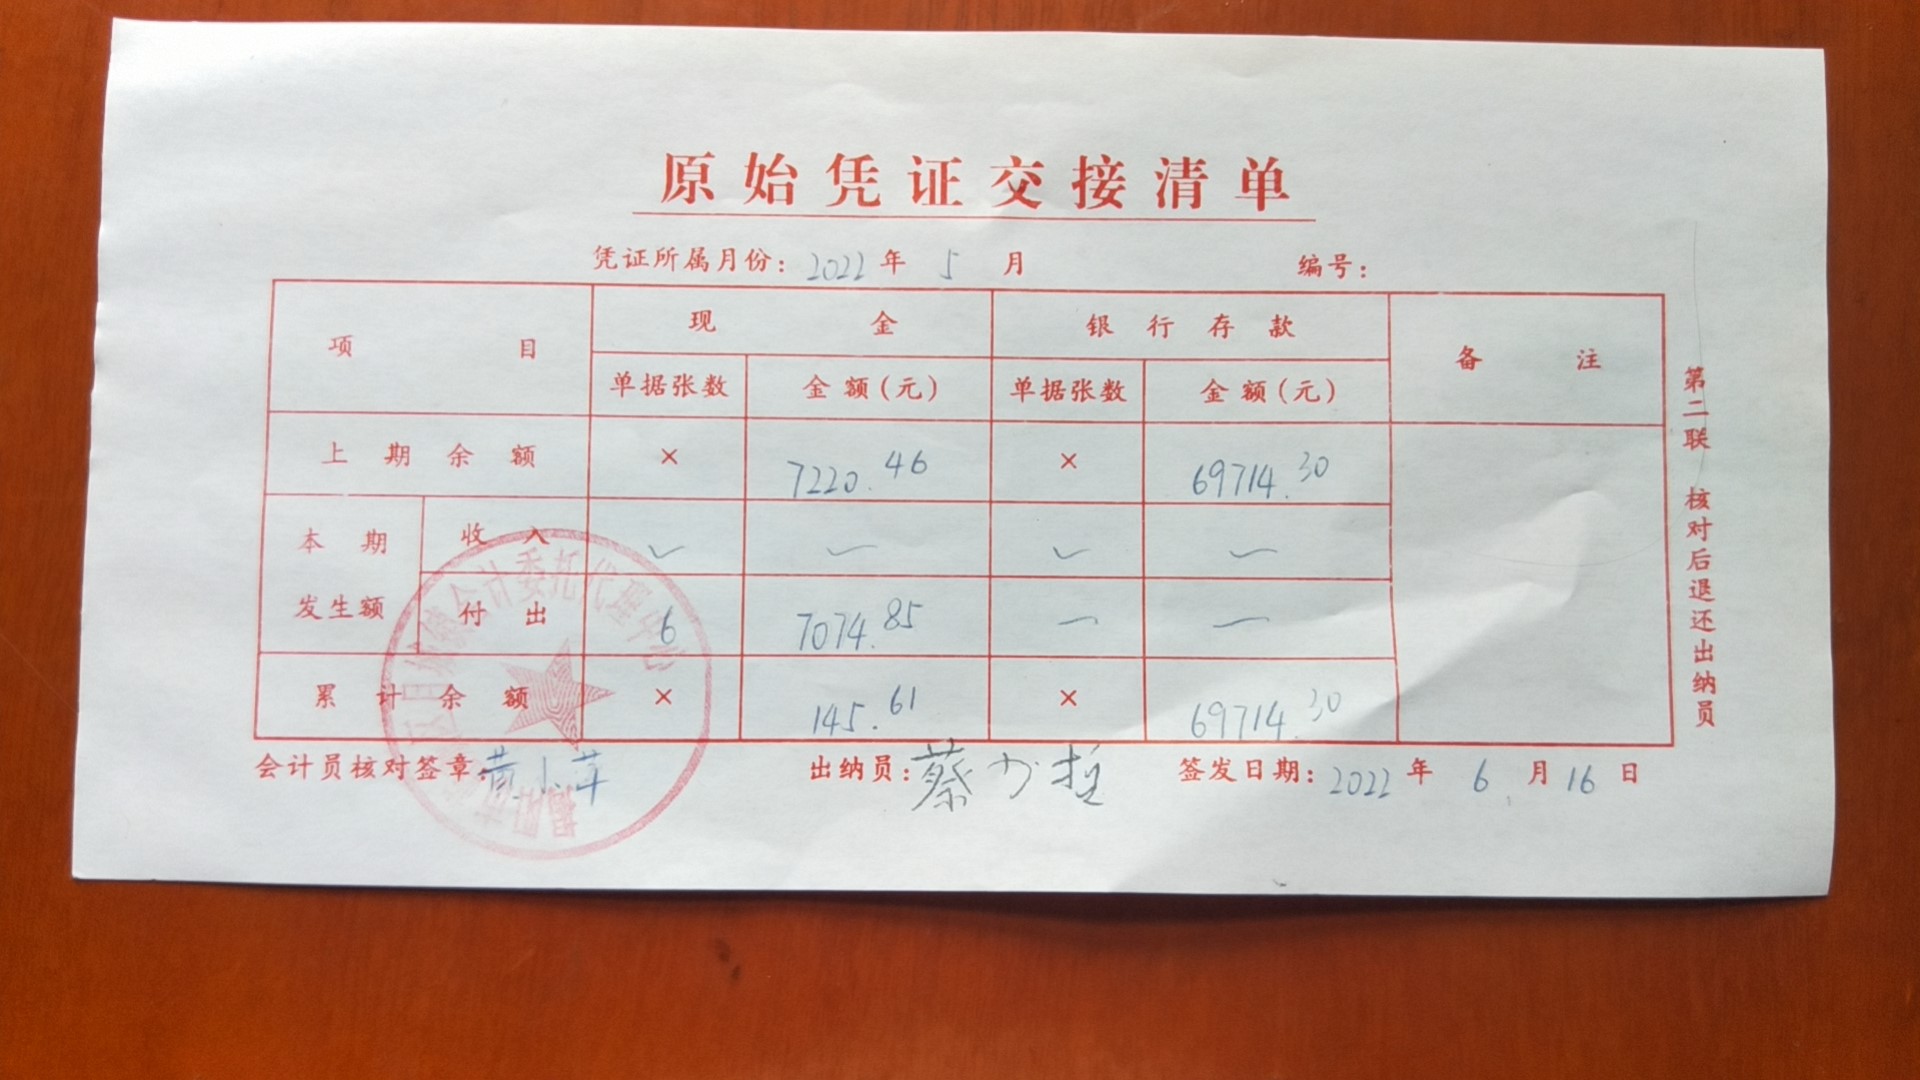 原始凭证交接清单
凭证所属月份：2022年 5 月 编号：
项目 现金 银行存款 备注
单据张数 金额(元) 单据张数 金额(元)
上期余额 × 7220.46 × 69714.30
本期发生额 收入
付出 6 7074.85
累计余额 × 145.61 × 69714.30
会计员核对签章： 出纳员：蔡 签发日期：2022年 6 月 16 日
第二联 核对后退还出纳员
会计委托代理中心